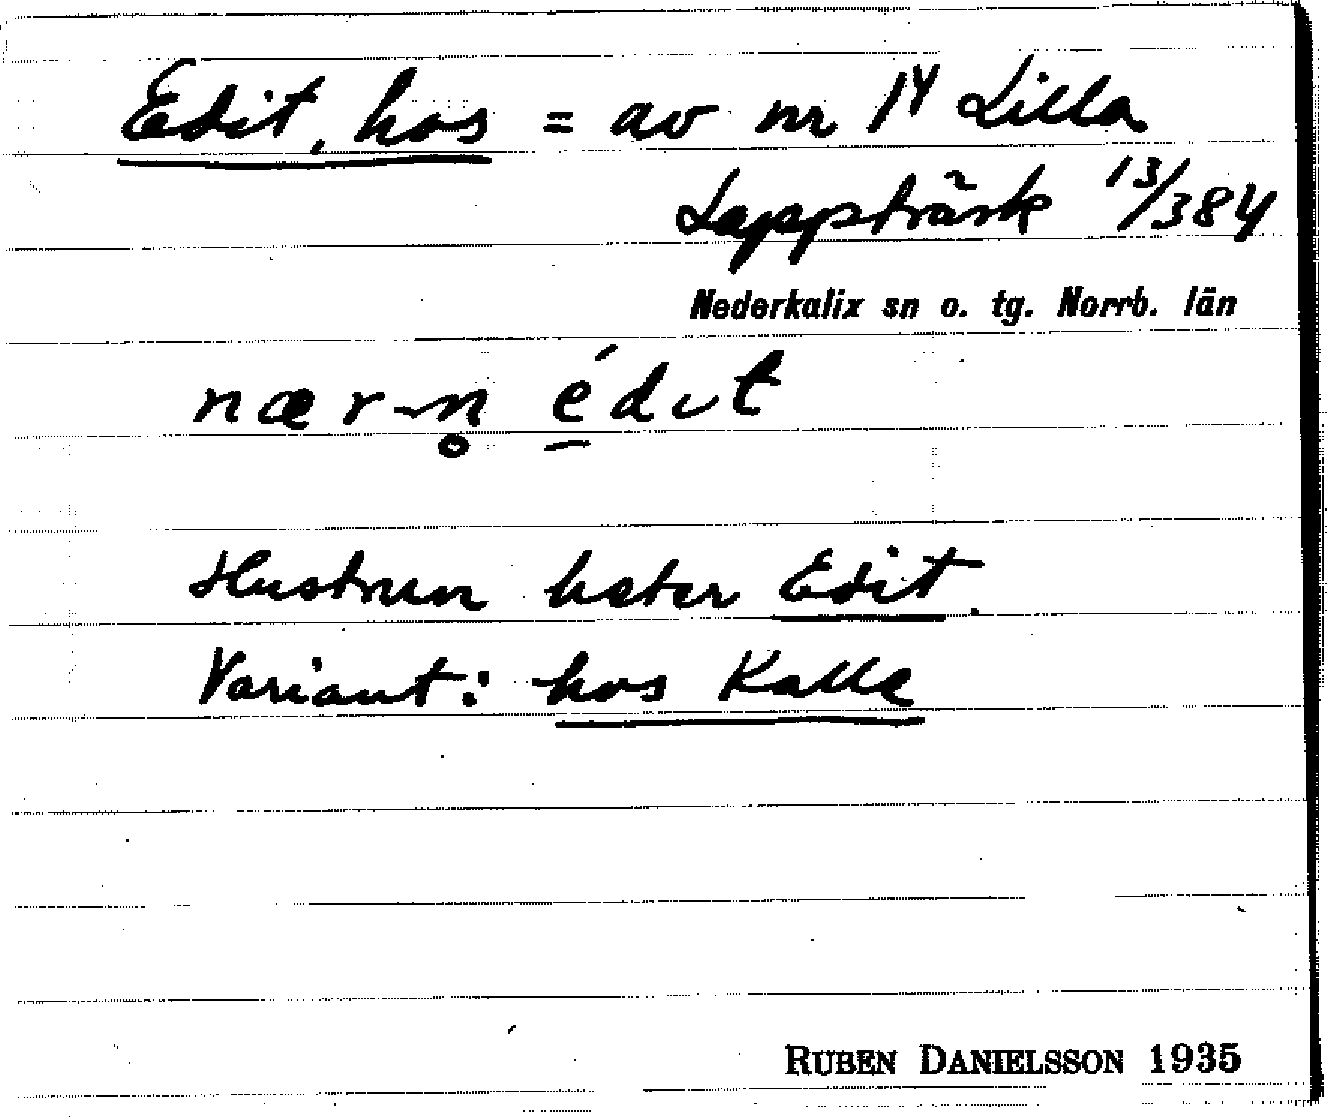 Edit, hos = av nr 1⁴ Lilla
Lappträsk 13/384
Nederkalix sn o. tg. Norrb. län
nær-n̥ é̱dɩt
Hustrun heter Edit.
Variant: hos Kalle
RUBEN DANIELSSON 1935